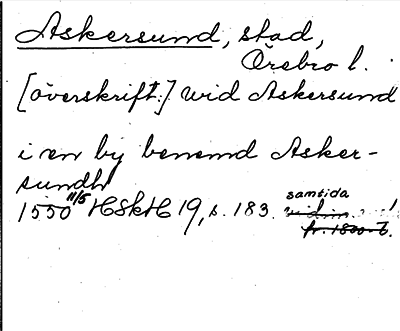 Askersund, stad,
Örebro l.
[överskrift:] wid Askersund
i en by benemd Asker-
sundh
1550 11/5 HSkH 19, s. 183. samtida
fr. 1800-t.